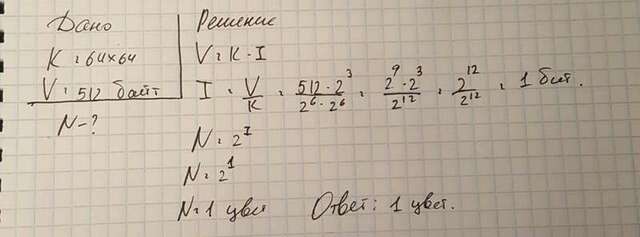 Дано
K = 64x64
V = 512 байт
N-?
Решение
V = K · I
I = V/K = 512 · 2³/2⁶ · 2⁶ = 2⁹ · 2³/2¹² = 2¹²/2¹² = 1 бит.
N = 2ᴵ
N = 2¹
N = 1 цвет Ответ: 1 цвет.